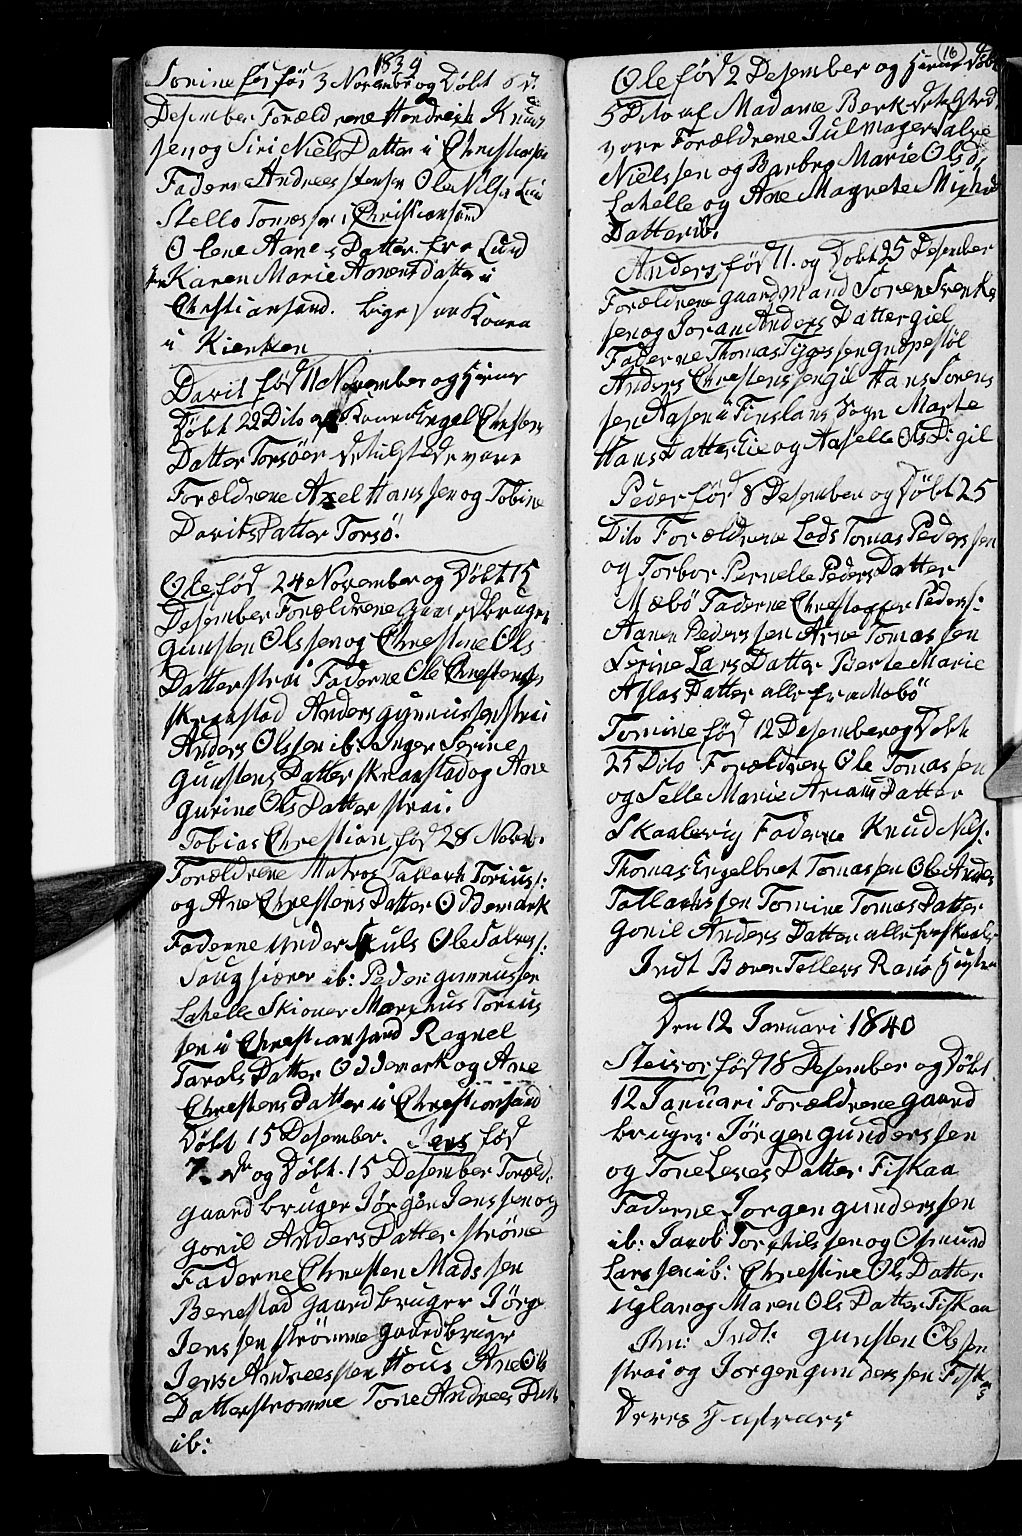 1839
Sonine før før 3 November og Døbt 8 d:
Desember Forældrene Hendrich Knud
sen og Siri Niels Datter i Christiansan
Faderne Andrees Jensen Ole Nilsen Lun
Stello Tomessen i Christiansand
Olene Aanes Datter fra Lund
Karen Marie Aanens datter i
Christiansand. Ligesaa Konen
i Kierken
Davit før 11 November og Hieme
Døbt 22 Dito af Kone Engel Chrestens
Datter Torsöen de tilstede vare
Forældrene Axel Hanssen og Tobine
Davits Datter Torsö.
Ole før 24 November og Døbt 15
Desember Forældrene Gaardbruger
Gunsten Olssen og Chrestine Ols
Datter strai Faderne Ole Chrestens
skraastad Anders Gunnussen strai
Anders Olssen ib: Inger Serine
Gunstens Datter skraastad og Ane
Gurine Ols Datter strai.
Tobias Chrestian før 28 Novbr.
Forældrene Matros Tallach Toriuss:
og Ane Chrestens Datter Oddernark
Faderne Under Skuls Ole Salves:
Saugskiærer ib: Peder Gunnussen
Lahelle Skioner Marchus Torius
sen i Christiansand Ragnel
Tarals Datter Oddemark og Ane
Chrestens Datter i Christiansand
Døbt 15 Desember. Jens før
7 de og Døbt. 15 Desember Foræld:
Gaardbruger Jørgen Jenssen og
Gonil Anders Datter strøme
Faderne Chresten Madssen
Benestad Gaardbruger Jörge
Jenssen strømme Gaardbruger
Jens Andreessen Hous Ane Ols
Datter stromme Tone Andrees Datt
ib:
16
Ole før 2 Desember og Hieme Døbt
5 Dito af Madame Berk de tilsted
vare Forældrene Julmager Salve
Nielssen og Barbro Marie Olsd:
Lahelle og Ane Magrete Mighels
Datter ib.
Anders før 11. og Døbt 25 Desember
Forældrene Gaardmand Soren Svenke
sen og Soran Anders Datter giel
Faderne Thomas Tygessen Gnopestöl
Anders Chrestenssen gil Hans Sorens
sen Aasen i Finslans Sogn Marte
Hans Datter Eie og Aaselle Ols D: gil
Peder før 8 Desember og Døbt 25
Dito Forældrene Lods Tomas Pederssen
og Torbor Pernelle Peders Datter
Mæbö Faderne Chrestoffer Peders:
Aanen Pederssen Arne Tomassen
Serine Lars Datter Berte Marie
Aslas Datter alle fra Mæbö
Tomine før 12 Desember og Døbt
25 Dito Forældren Ole Tomassen
og Selle Marie Ariaus Datter
Skaalevig Faderne Knud Nils:
Thomas Engelbret Tomassen Ole Anders
Tallachssen Tomine Tomas Datter
Gonil Anders Datter alle fra skaale
Indt Bæren Tellefs Ranö Hustru
Den 12 Januari 1840
Steivor før 18 Desember og Døbt
12 Januari Forældrene Gaard
bruger Jörgen Gunderssen
og Tone Leves Datter Fiskaa
Faderne Jorgen gunderssen
ib: Jacob Torchilssen og Osmund
Larssen ib: Chrestine Ols Datter
Uglan og Maren Ols Datter Fiskaa
Indt: Gunsten Olssen
strai og Jorgen gunderssen Fisk
Deres Hustruer